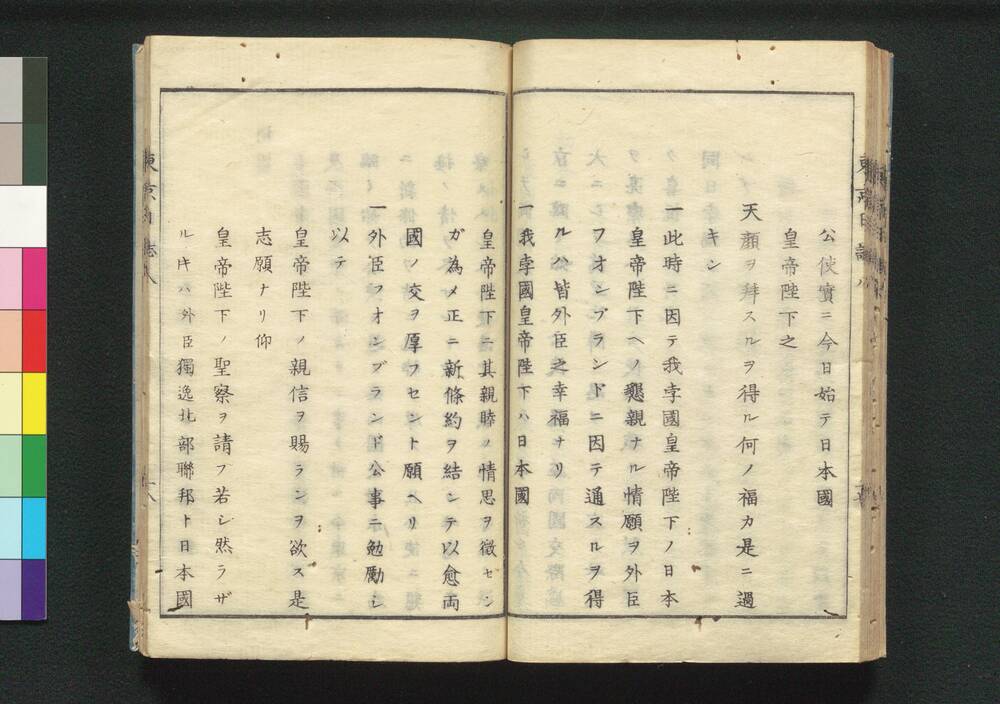 公使實ニ今日始テ日本國
皇帝陛下之
天顔ヲ拜スルヲ得ル何ノ福カ是ニ過
キン
一此時ニ因テ我孛國皇帝陛下ノ日本
皇帝陛下ヘノ懇親ナル情願ヲ外臣
フオンブランドニ因テ通スルヲ得
ルハ皆外臣之幸福ナリ
一我孛國皇帝陛下ハ日本國
皇帝陛下ニ其親睦ノ情思ヲ徴セン
ガ為メ正ニ新條約ヲ結ンテ以愈両
國ノ交ヲ厚フセント願ヘリ
一外臣フオンブランド公事ニ勉勵シ
以テ
皇帝陛下ノ親信ヲ賜ランヲ欲ス是
志願ナリ仰
皇帝陛下ノ聖察ヲ請フ若シ然ラザ
ルキハ外臣獨逸北部聯邦ト日本國
東京日誌八